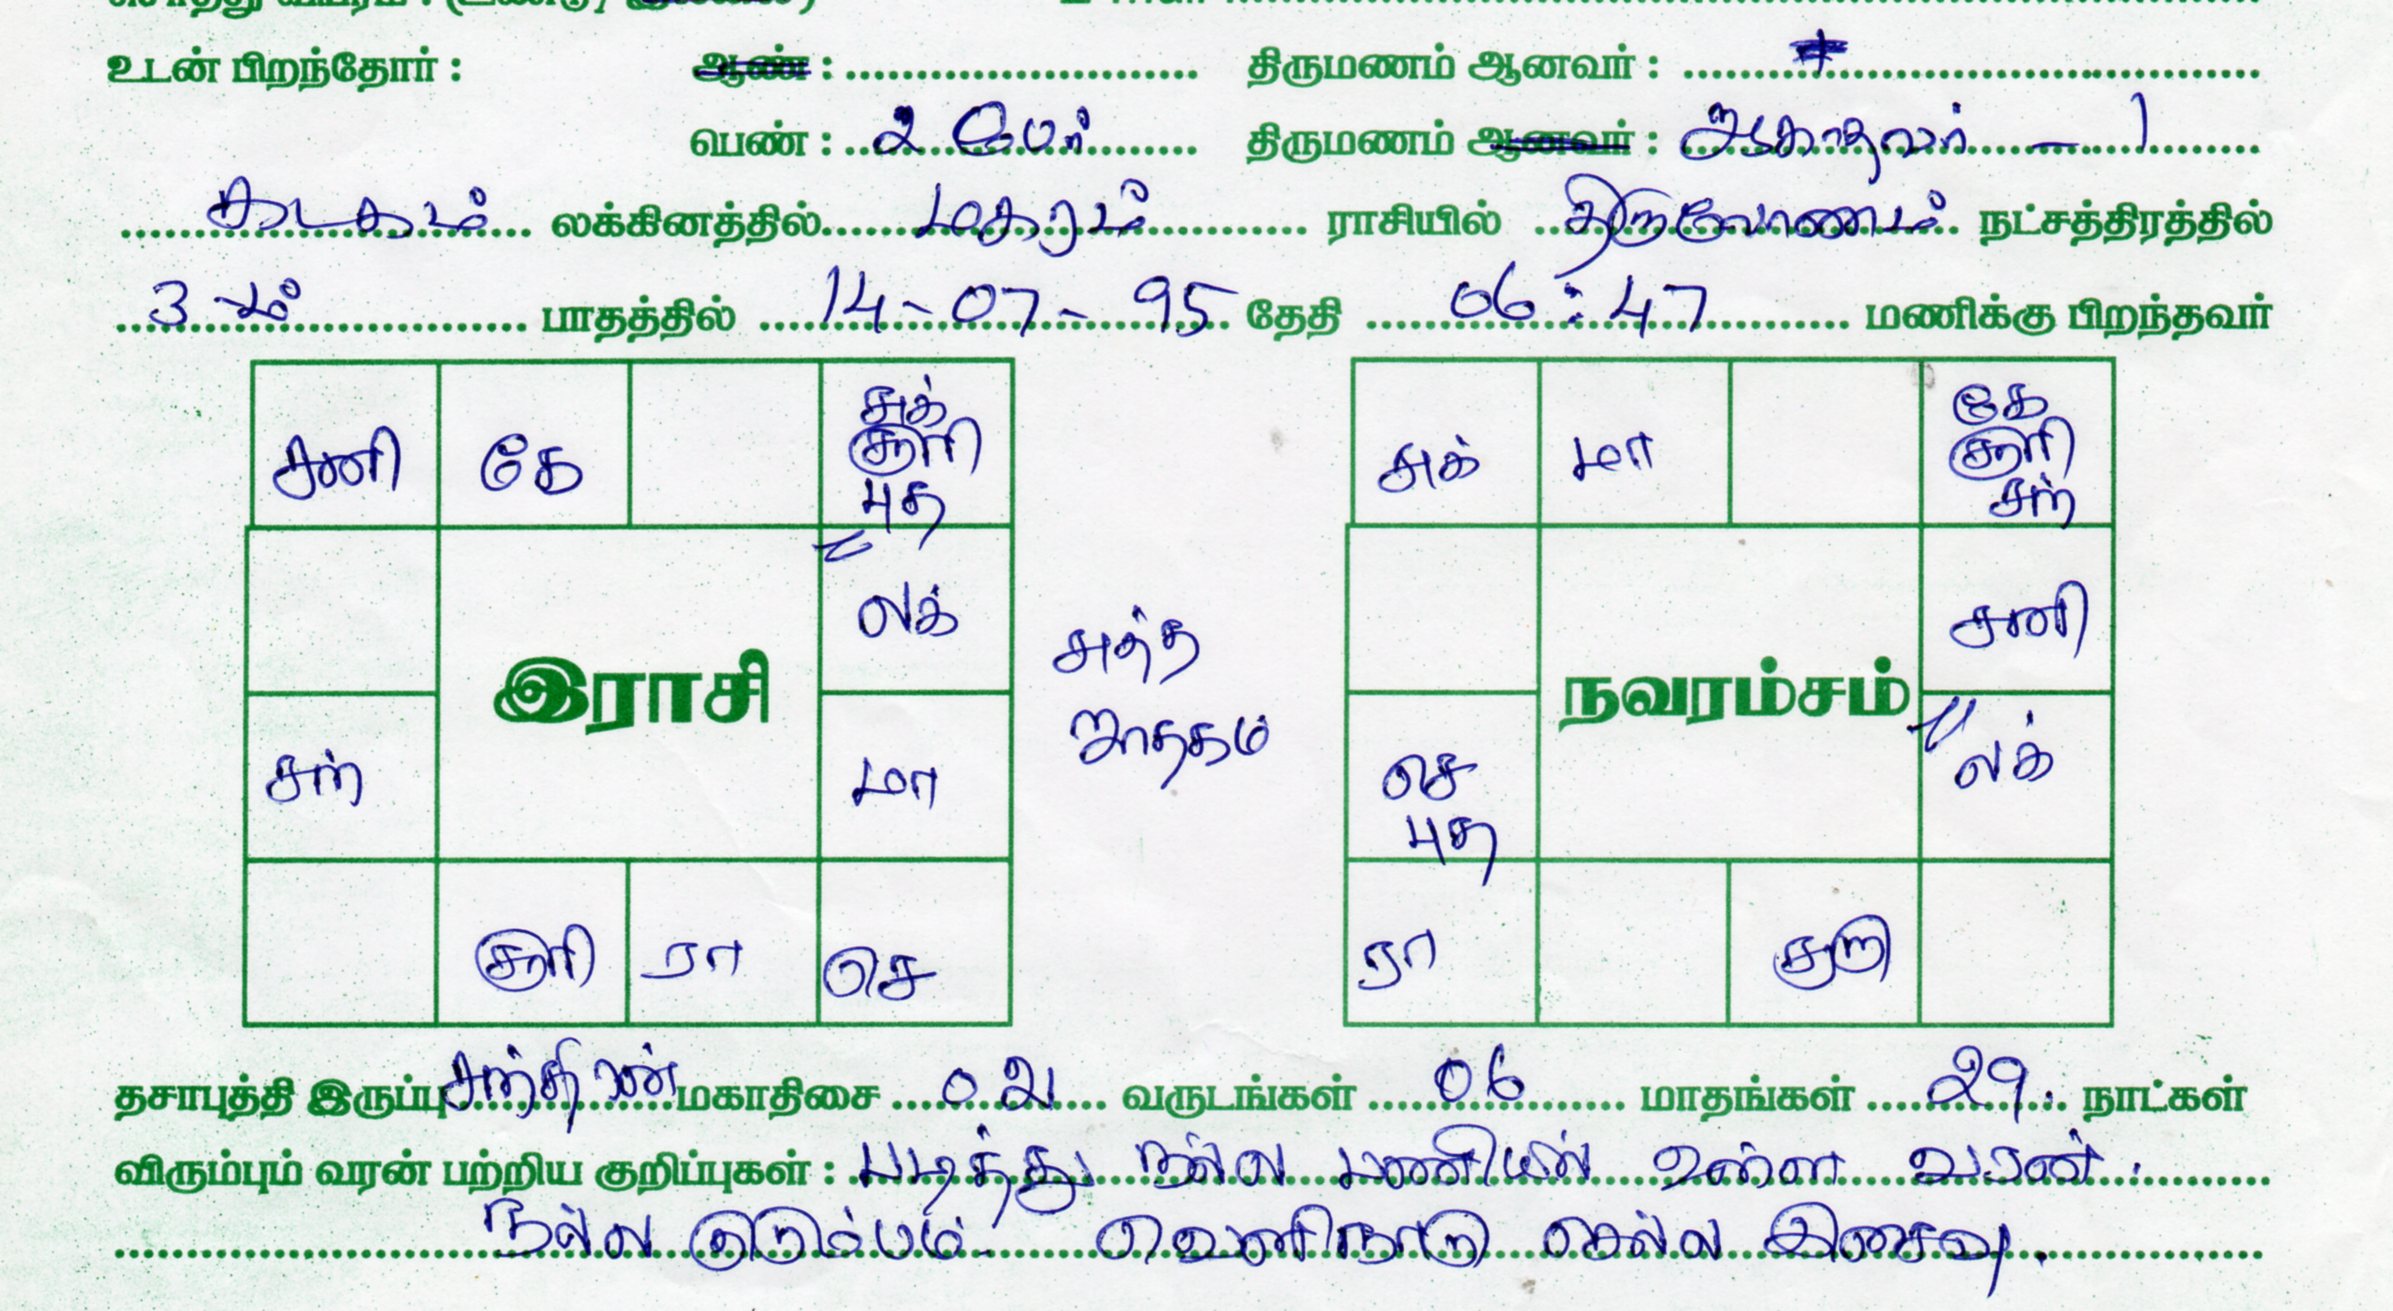 உடன் பிறந்தோர் : ஆண் : திருமணம் ஆனவர் :
பெண் : 2 பேர் திருமணம் ஆனவர் : ஆகாதவர் - 1
கடகம் லக்கினத்தில் மகரம் ராசியில் திருவோணம் நட்சத்திரத்தில்
3 ம் பாதத்தில் 14-07-95 தேதி 06:47 மணிக்கு பிறந்தவர்
சனி கே சுக் சூரி புத
லக்
இராசி
சந் மா
சூரி ரா செ
சுத்த
ஜாதகம்
சுக் மா கே சூரி சந்
சனி
நவரம்சம்
செ புத லக்
ரா குரு
தசாபுத்தி இருப்பு சந்திரன் மகாதிசை 02 வருடங்கள் 06 மாதங்கள் 29. நாட்கள்
விரும்பும் வரன் பற்றிய குறிப்புகள் : படித்து நல்ல பணியில் உள்ள வரன்.
நல்ல குடும்பம் வெளிநாடு செல்ல இசைவு.